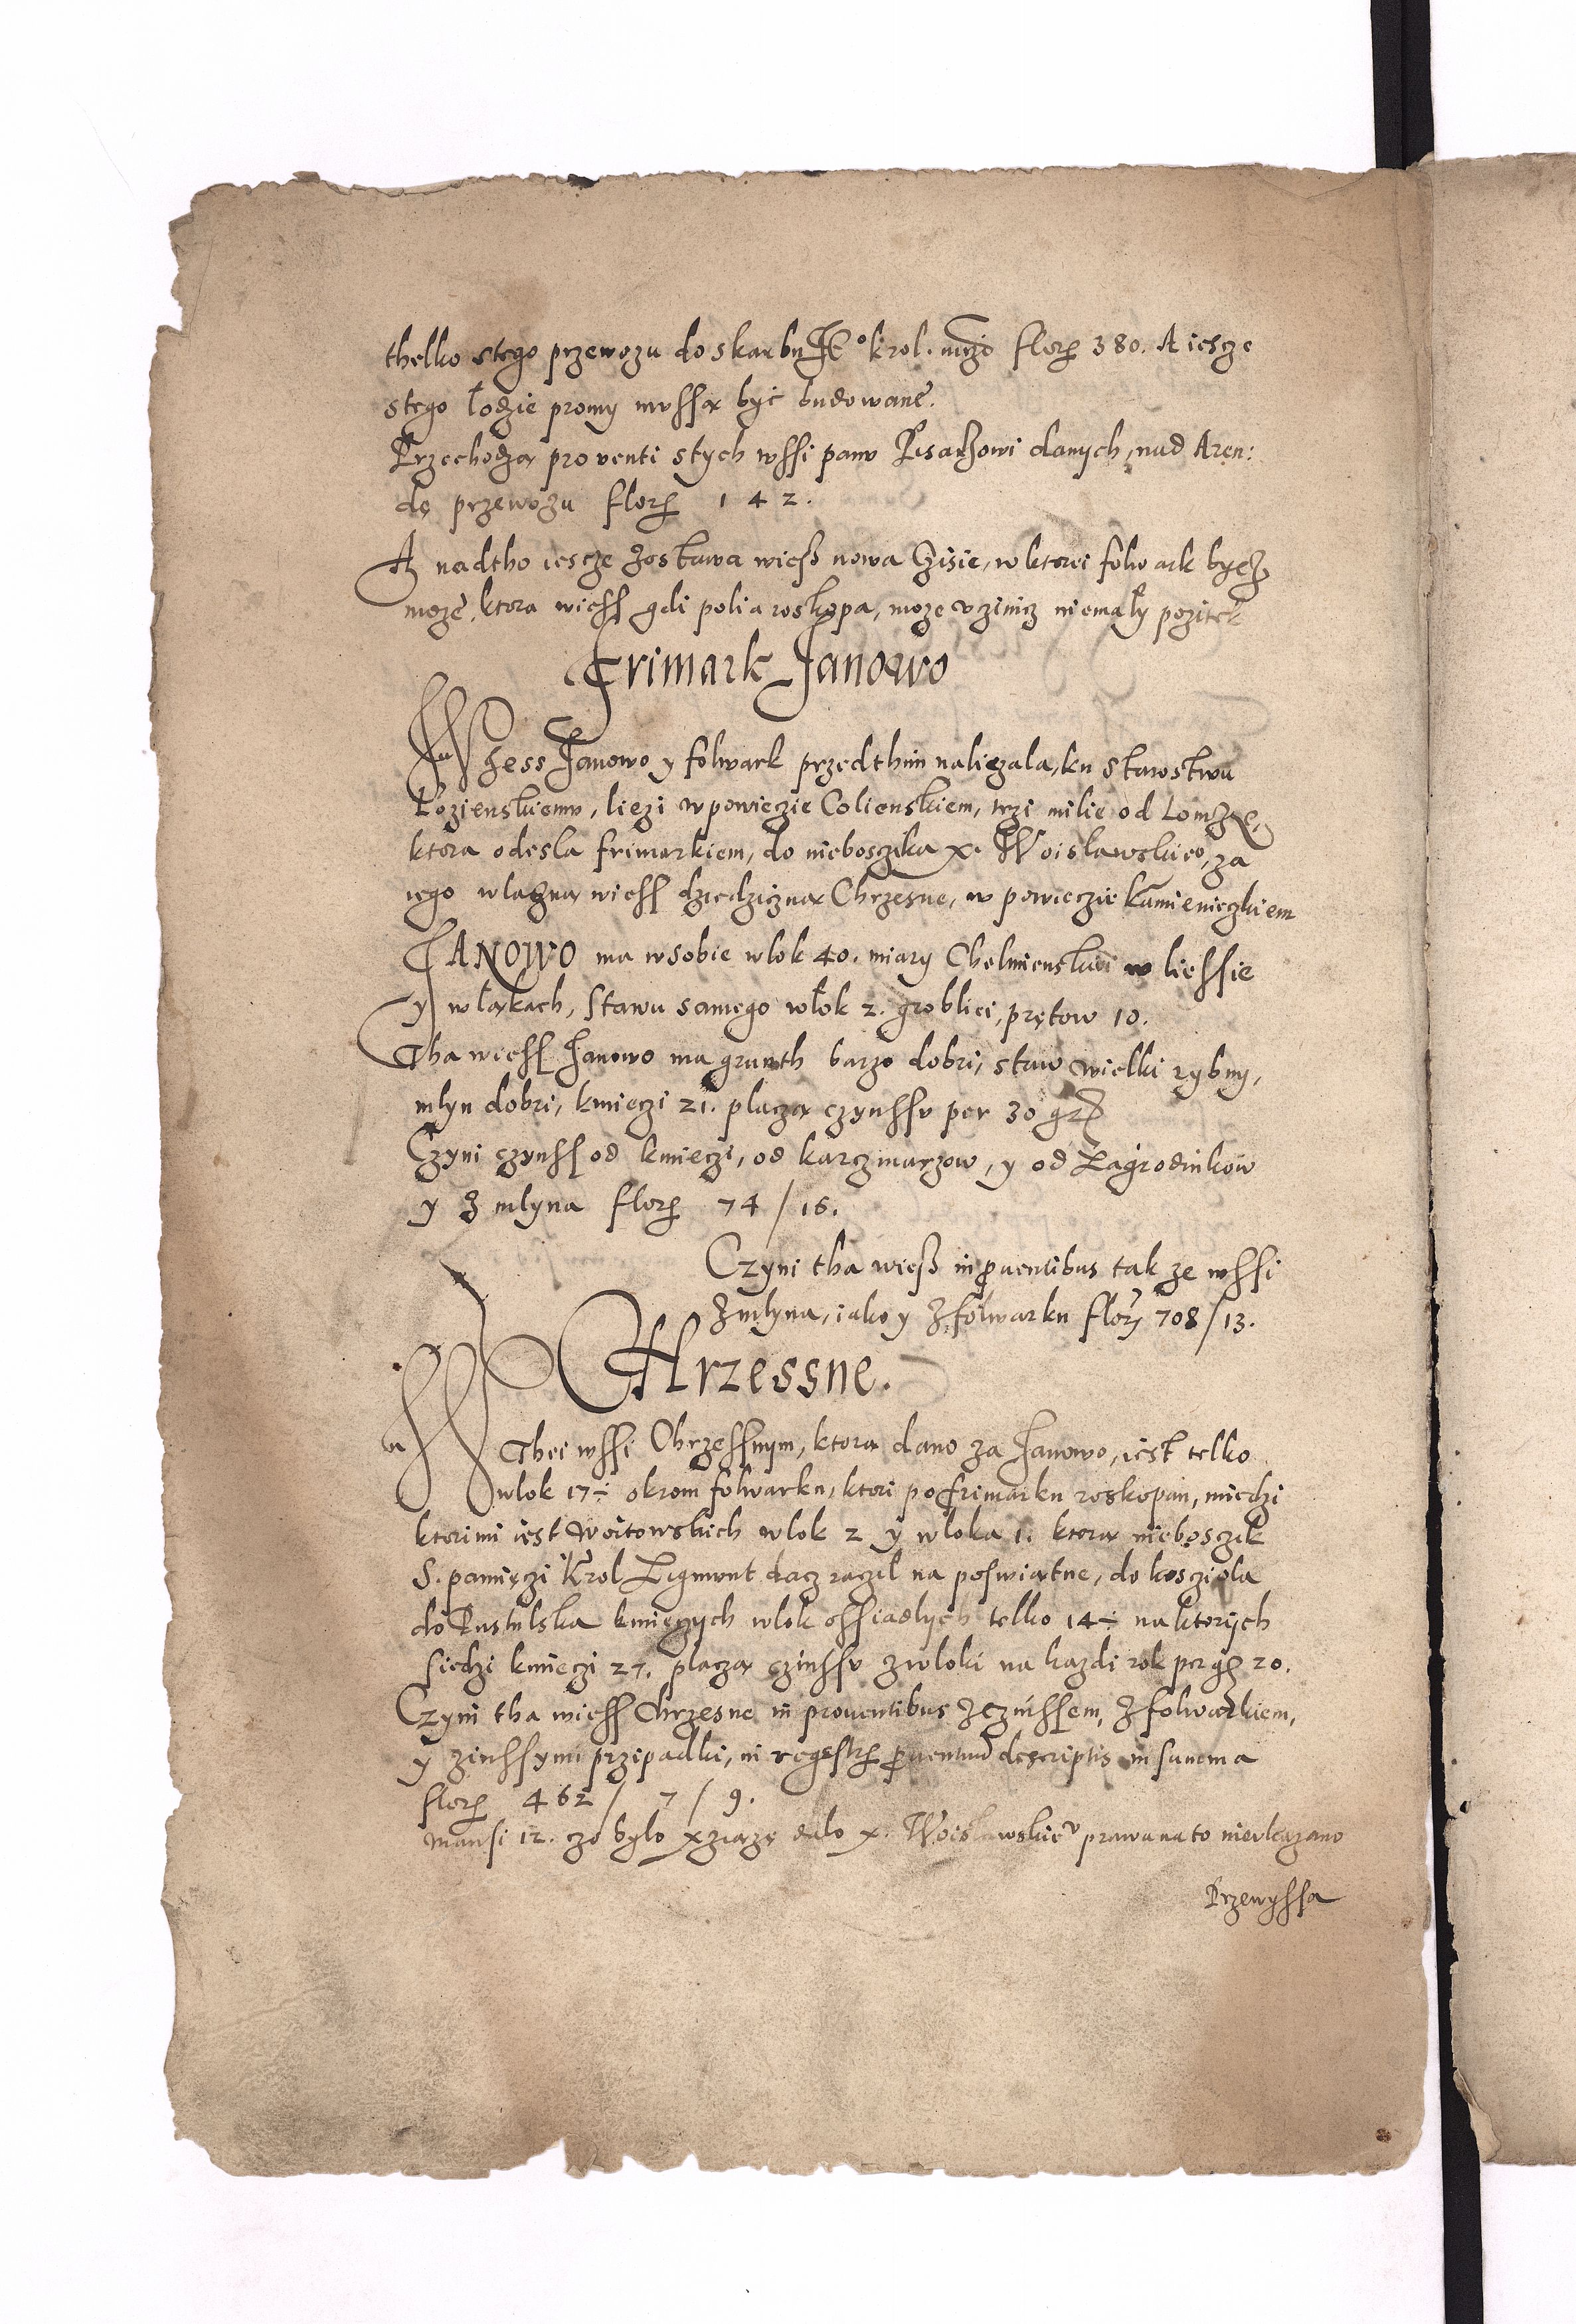 thelko stego przewozu do skarbu JE° krol. mczi florz 380. A iescze
stego łodzie promy mussą być budowane.
Przechodzą proventi stych wssi panu Pisarzowi danych, nad Aren:
dę przewozu florz 142.
A nadtho iescze zostawa wieß nowa Czisie, w ktorei folwark bycz
może, ktora wiess gdi polia roskopa, moze uzinicz niemały pozitek
Frimark Janowo
Wiess Janowo y folwark przedthim nalieżała, ku starostwu
Łozienskiemu, liezi w powieczie Colienskiem, trzi milie od Łomzæ,
ktora odesla frimarkiem, do nieboszika x. Woislawskie°, za
iego własną wiess dziedziczną Chrzesne, w powieczie kamienieczkiem
JANOWO ma wsobie wlok 40. miary Chelmienskiei w liessie
y w łąkach, stawu samego włok 2. groblici, prętow 10.
Tha wiess Janowo ma grunth barzo dobri, staw wielki rybny,
młyn dobri, kmieczi 21. płaczą czynssu per 30 gr
Czyni czynss od kmieczi, od karczmarzow, y od Zagrodnikow
y z młyna florz 74/16.
Czyni tha wieß in proventibus tak ze wssi
z młyna, iako y z folwarku flor 708/13.
CHrzessne.
W Thei wssi Chrzessnym, ktorą dano za Janowo, iest telko
wlok 17÷ okrom folwarku, ktori po frimarku roskopan, miedzi
ktorimi iest woitowskich wlok 2 y wloka 1. ktorą nieboszcik
S. pamięczi Krol Zigmunt dacz raczil na poswiątne, do koscziola
do Pustulska kmieczych wlok ossiadłych telko 14÷ na ktorych
siedzi kmieczi 27. płaczą czinssu z wloki na kazdi rok per g 20.
Czyni tha wiess Chrzesne in proventibus z czinssem, z folwarkiem,
y z inssymi przipadki, in regestr proventuu descriptis in summa
florz 462/ 7/ 9.
Mansi 12. czo było xziążę dało x. Woislawskie° prawa na to nieukazano
Przewyssa